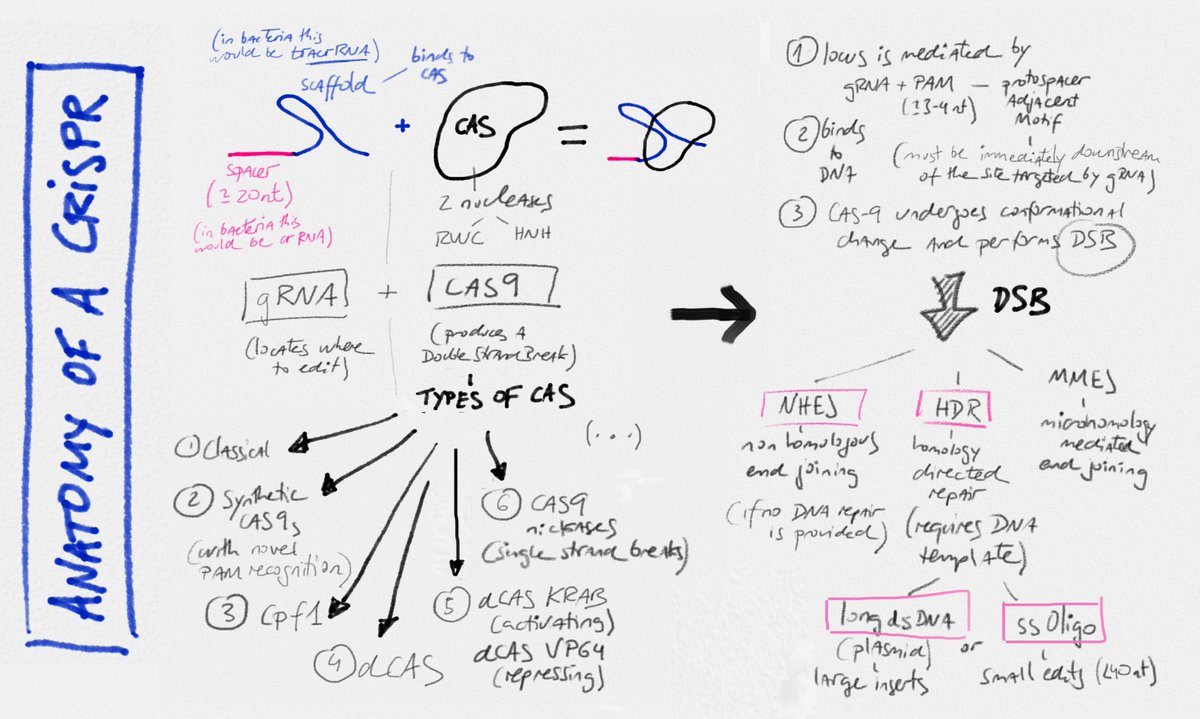 ANATOMY OF A CRISPR
(in bacteria this
would be tracrRNA)
SCAFFOLD
binds to
CAS
+
CAS
=
SPACER
(≥20nt)
(in bacteria this
would be crRNA)
2 nucleases
RWC HNH
gRNA + CAS9
(locates where
to edit)
(produces A
Double Strand Break)
TYPES OF CAS
(...)
① Classical
② Synthetic
CAS9s
(with novel
PAM recognition)
③ Cpf1
④ dCAS
⑤ dCAS KRAB
(activating)
dCAS VP64
(repressing)
⑥ CAS9
nickases
(single strand breaks)
① locus is mediated by
gRNA + PAM — protospacer
(≥3-4nt) Adjacent
Motif
② binds
to
DNA
(must be immediately downstream
of the site targeted by gRNA)
③ CAS-9 undergoes conformational
change and performs DSB
DSB
NHEJ
non homologous
end joining
(if no DNA repair
is provided)
HDR
homology
directed
repair
(requires DNA
template)
MMEJ
microhomology
mediated
end joining
long dsDNA
(plasmid) or
large inserts
ss Oligo
small edits (<40nt)